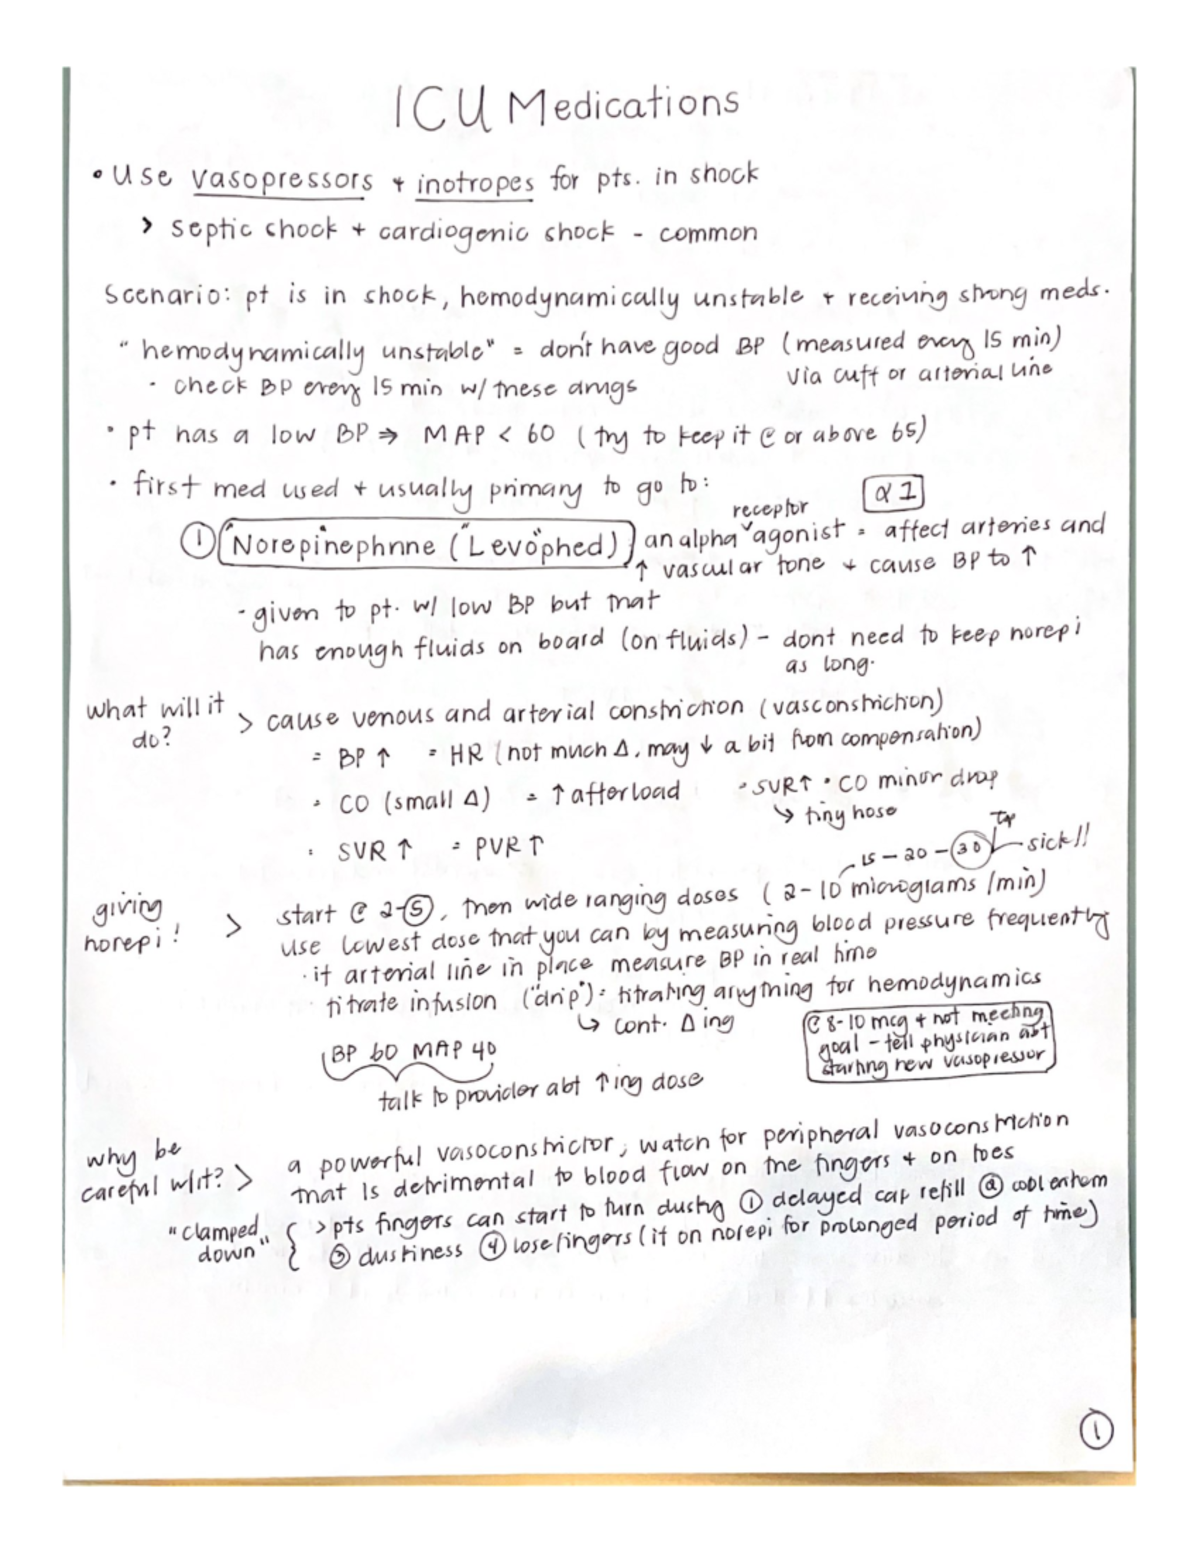 ICU Medications
• Use vasopressors + inotropes for pts. in shock
> septic shock + cardiogenic shock - common
Scenario: pt is in shock, hemodynamically unstable + receiving strong meds.
"hemodynamically unstable" = don't have good BP (measured every 15 min)
via cuff or arterial line
· check BP every 15 min w/ these drugs
· pt has a low BP ⇒ MAP < 60 (try to keep it @ or above 65)
· first med used + usually primary to go to:
α1
receptor
① "Norepinephrine ("Levophed) an alpha ˅ agonist = affect arteries and
↑ vascular tone + cause BP to ↑
- given to pt. w/ low BP but that
has enough fluids on board (on fluids) - dont need to keep norepi
as long.
what will it do? > cause venous and arterial constriction (vasconstriction)
= BP ↑ = HR (not much Δ, may ↓ a bit from compensation)
· CO (small Δ) = ↑ afterload · SVR↑ · CO minor drop
↳ tiny hose
· SVR ↑ = PVR ↑
15 - 20 - 30 top sick!!
giving norepi! > start @ 2-5, then wide ranging doses (2-10 micrograms/min)
use lowest dose that you can by measuring blood pressure frequently
· if arterial line in place measure BP in real time
· titrate infusion ("drip") = titrating anything for hemodynamics
↳ cont. Δing
@ 8-10 mcg + not meeting
goal - tell physician abt
starting new vasopressor
BP 60 MAP 40
talk to provider abt ↑ing dose
why be careful w/it? > a powerful vasoconstrictor, watch for peripheral vasoconstriction
that is detrimental to blood flow on the fingers + on toes
"clamped down" { > pts fingers can start to turn dusky ① delayed cap refill ② cool
③ duskiness ④ lose fingers (if on norepi for prolonged period of time)
①